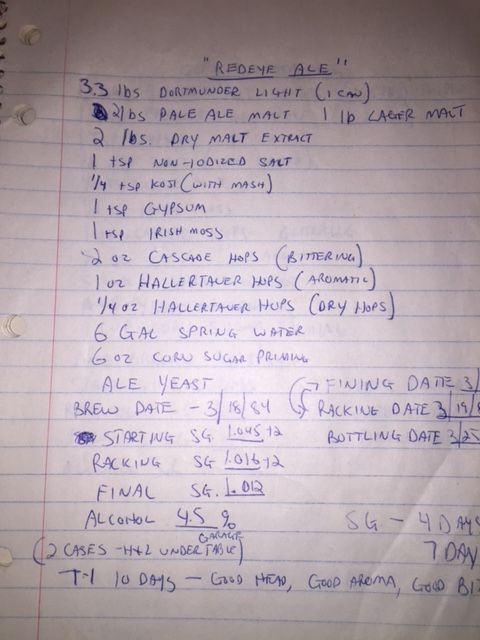 "REDEYE ALE"
3.3 lbs DORTMUNDER LIGHT (1 CAN)
2 lbs PALE ALE MALT 1 lb LAGER MALT
2 lbs. DRY MALT EXTRACT
1 tsp NON-IODIZED SALT
1/4 tsp KOJI (WITH MASH)
1 tsp GYPSUM
1 tsp IRISH MOSS
2 oz CASCADE HOPS (BITTERING)
1 oz HALLERTAUER HOPS (AROMATIC)
1/4 oz HALLERTAUER HOPS (DRY HOPS)
6 GAL SPRING WATER
6 oz CORN SUGAR PRIMING
ALE YEAST FINING DATE 3/
BREW DATE - 3/18/84 RACKING DATE 3/19/8
STARTING SG 1.045+2 BOTTLING DATE 3/25
RACKING SG 1.016+2
FINAL SG. 1.012
ALCOHOL 4.5 % SG - 4 DAYS
GARAGE
(2 CASES - H+L UNDER TABLE) 7 DAY
T-1 10 DAYS - GOOD HEAD, GOOD AROMA, GOOD BI